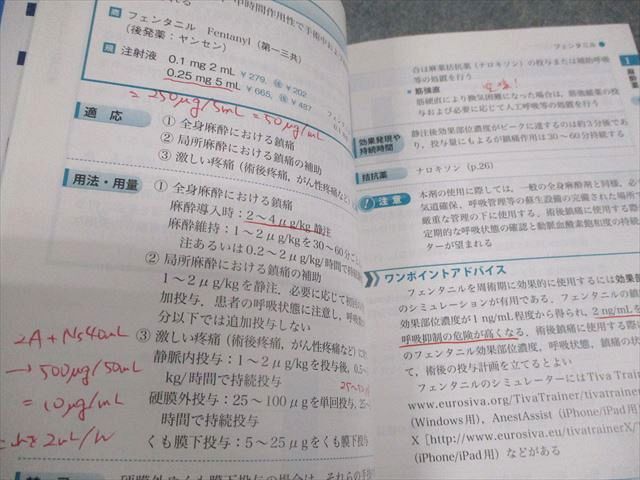 商 フェンタニル Fentanyl (第一三共)
(後発薬：ヤンセン)
規 注射液
0.1 mg 2 mL ￥279,
￥202
0.25 mg 5 mL ￥665,
￥487
= 250μg/5mL = 50μg/mL
適 応
① 全身麻酔における鎮痛
② 局所麻酔における鎮痛の補助
③ 激しい疼痛 (術後疼痛, がん性疼痛など)
用法・用量
① 全身麻酔における鎮痛
麻酔導入時：2～4μg/kg 静注
麻酔維持：1～2μg/kgを30～60分ごと
注あるいは0.2～2μg/kg/時間で持続
② 局所麻酔における鎮痛の補助
1～2μg/kgを静注, 必要に応じて
加投与. 患者の呼吸状態に注意し,
分以下では追加投与しない
③ 激しい疼痛 (術後疼痛, がん性疼痛など)
静脈内投与：1～2μg/kgを投与後, 0.5～
kg/時間で持続投与
硬膜外投与：25～100μgを単回投与, 25～
時間で持続投与
くも膜下投与：5～25μgをくも膜下投与
2A + NS40mL
→ 500μg/50mL
= 10μg/mL
2mL/H
フェンタニル
1
合は麻薬拮抗薬 (ナロキソン) の投与または補助呼吸
等の処置を行う
■ 筋強直
筋硬直により換気困難になった場合は, 筋弛緩薬の投
与および必要に応じて人工呼吸等の処置を行う
効果発現や
持続時間
静注後効果部位濃度がピークに達するのは約3分後であ
り, 投与量にもよるが鎮痛作用は30～60分持続する
拮抗薬
ナロキソン (p.26)
! 注 意
本剤の使用に際しては, 一般の全身麻酔剤と同様, 必ず
気道確保, 呼吸管理等の蘇生設備の完備された場所で
厳重な管理の下に使用する. 術後鎮痛に使用する際
定期的な呼吸状態の確認と動脈血酸素飽和度の持続
ターが望まれる
ワンポイントアドバイス
フェンタニルを周術期に効果的に使用するには効果部
のシミュレーションが有用である. フェンタニルの鎮
効果部位濃度が1 ng/mL程度から得られ, 2 ng/mLを
呼吸抑制の危険が高くなる. 術後鎮痛に使用する際
のフェンタニル効果部位濃度, 呼吸状態, 鎮痛の状
て, 術後の投与計画を立てるとよい
フェンタニルのシミュレーターにはTiva Train
www.eurosiva.org/TivaTrainer/tivatrainer
(Windows用), AnestAssist (iPhone/iPad用
X [http://www.eurosiva.eu/tivatrainerX/T
(iPhone/iPad用) などがある